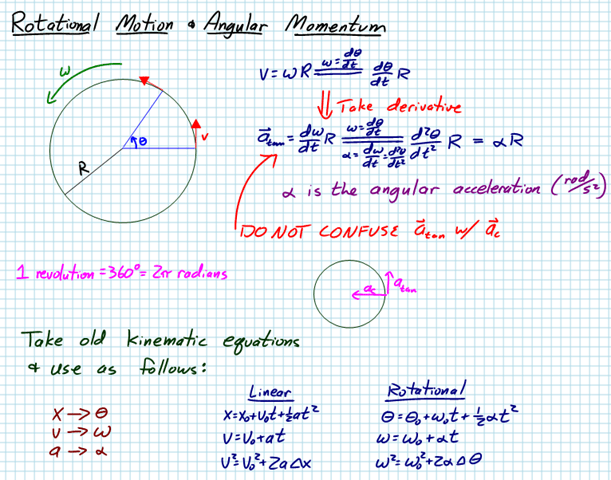 Rotational Motion & Angular Momentum
ω
θ
v
R
V = ωR ω = dθ/dt dθ/dt R
⇓ Take derivative
a⃗tan = dω/dt R ω = dθ/dt α = dω/dt = d²θ/dt² d²θ/dt² R = αR
α is the angular acceleration (rad/s²)
DO NOT CONFUSE a⃗tan w/ a⃗c
1 revolution = 360° = 2π radians
ac
atan
Take old kinematic equations
& use as follows:
Linear
Rotational
X → θ
V → ω
a → α
X = X₀ + V₀t + ½at²
V = V₀ + at
V² = V₀² + 2aΔx
θ = θ₀ + ω₀t + ½αt²
ω = ω₀ + αt
ω² = ω₀² + 2αΔθ